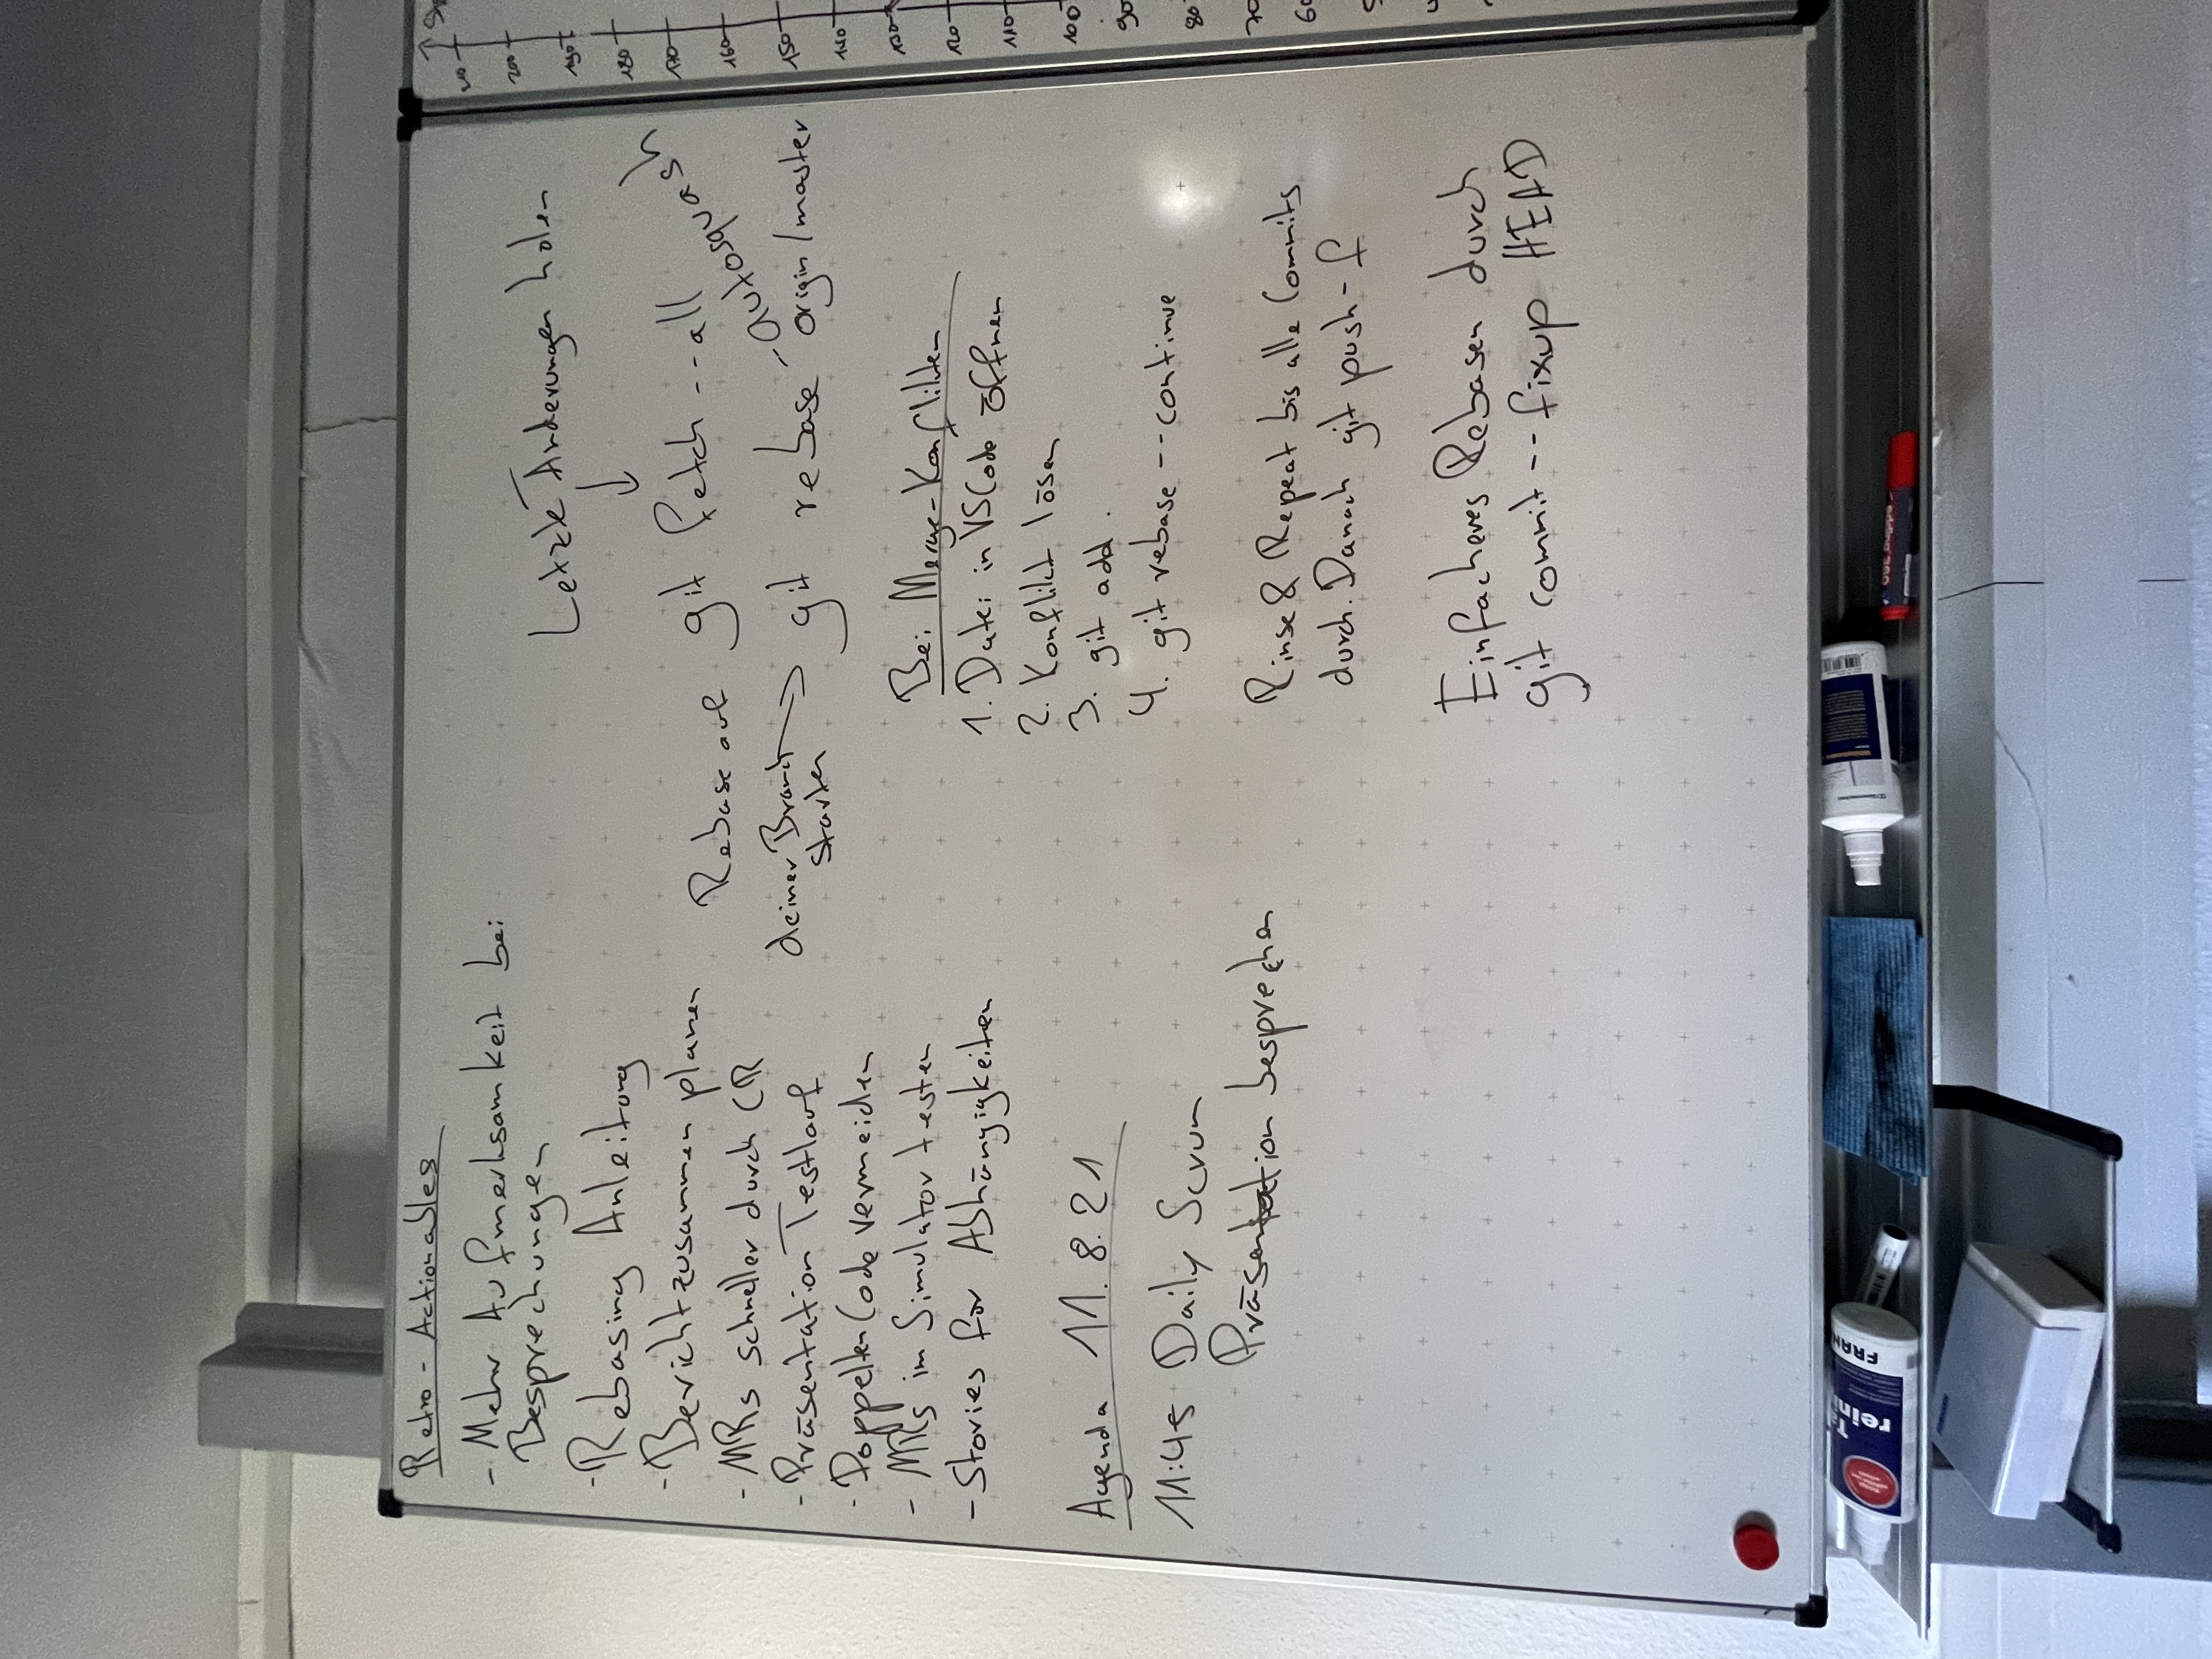 Retro - Actionables
- Mehr Aufmerksamkeit bei
Besprechungen
- Rebasing Anleitung
- Bericht zusammen planen
- MRs schneller durch CR
- Präsentation Testlauf
- Doppelten Code vermeiden
- MRs im Simulator testen
- Stories für Abhängigkeiten
Agenda 11.8.21
11:45 Daily Scrum
Präsentation besprechen
Letzte Änderungen holen
↓
git fetch --all
Rebase auf
deiner Branch →
starten
git rebase -autosquash origin/master
Bei Merge-Konflikten
1. Datei in VSCode öffnen
2. Konflikt lösen
3. git add .
4. git rebase --continue
Rinse & Repeat bis alle Commits
durch. Danach git push -f
Einfacheres Rebasen durch
git commit --fixup HEAD
210
200
190
180
170
160
150
140
130
120
110
100
90
80
70
60
reini
FRAN
edding 360